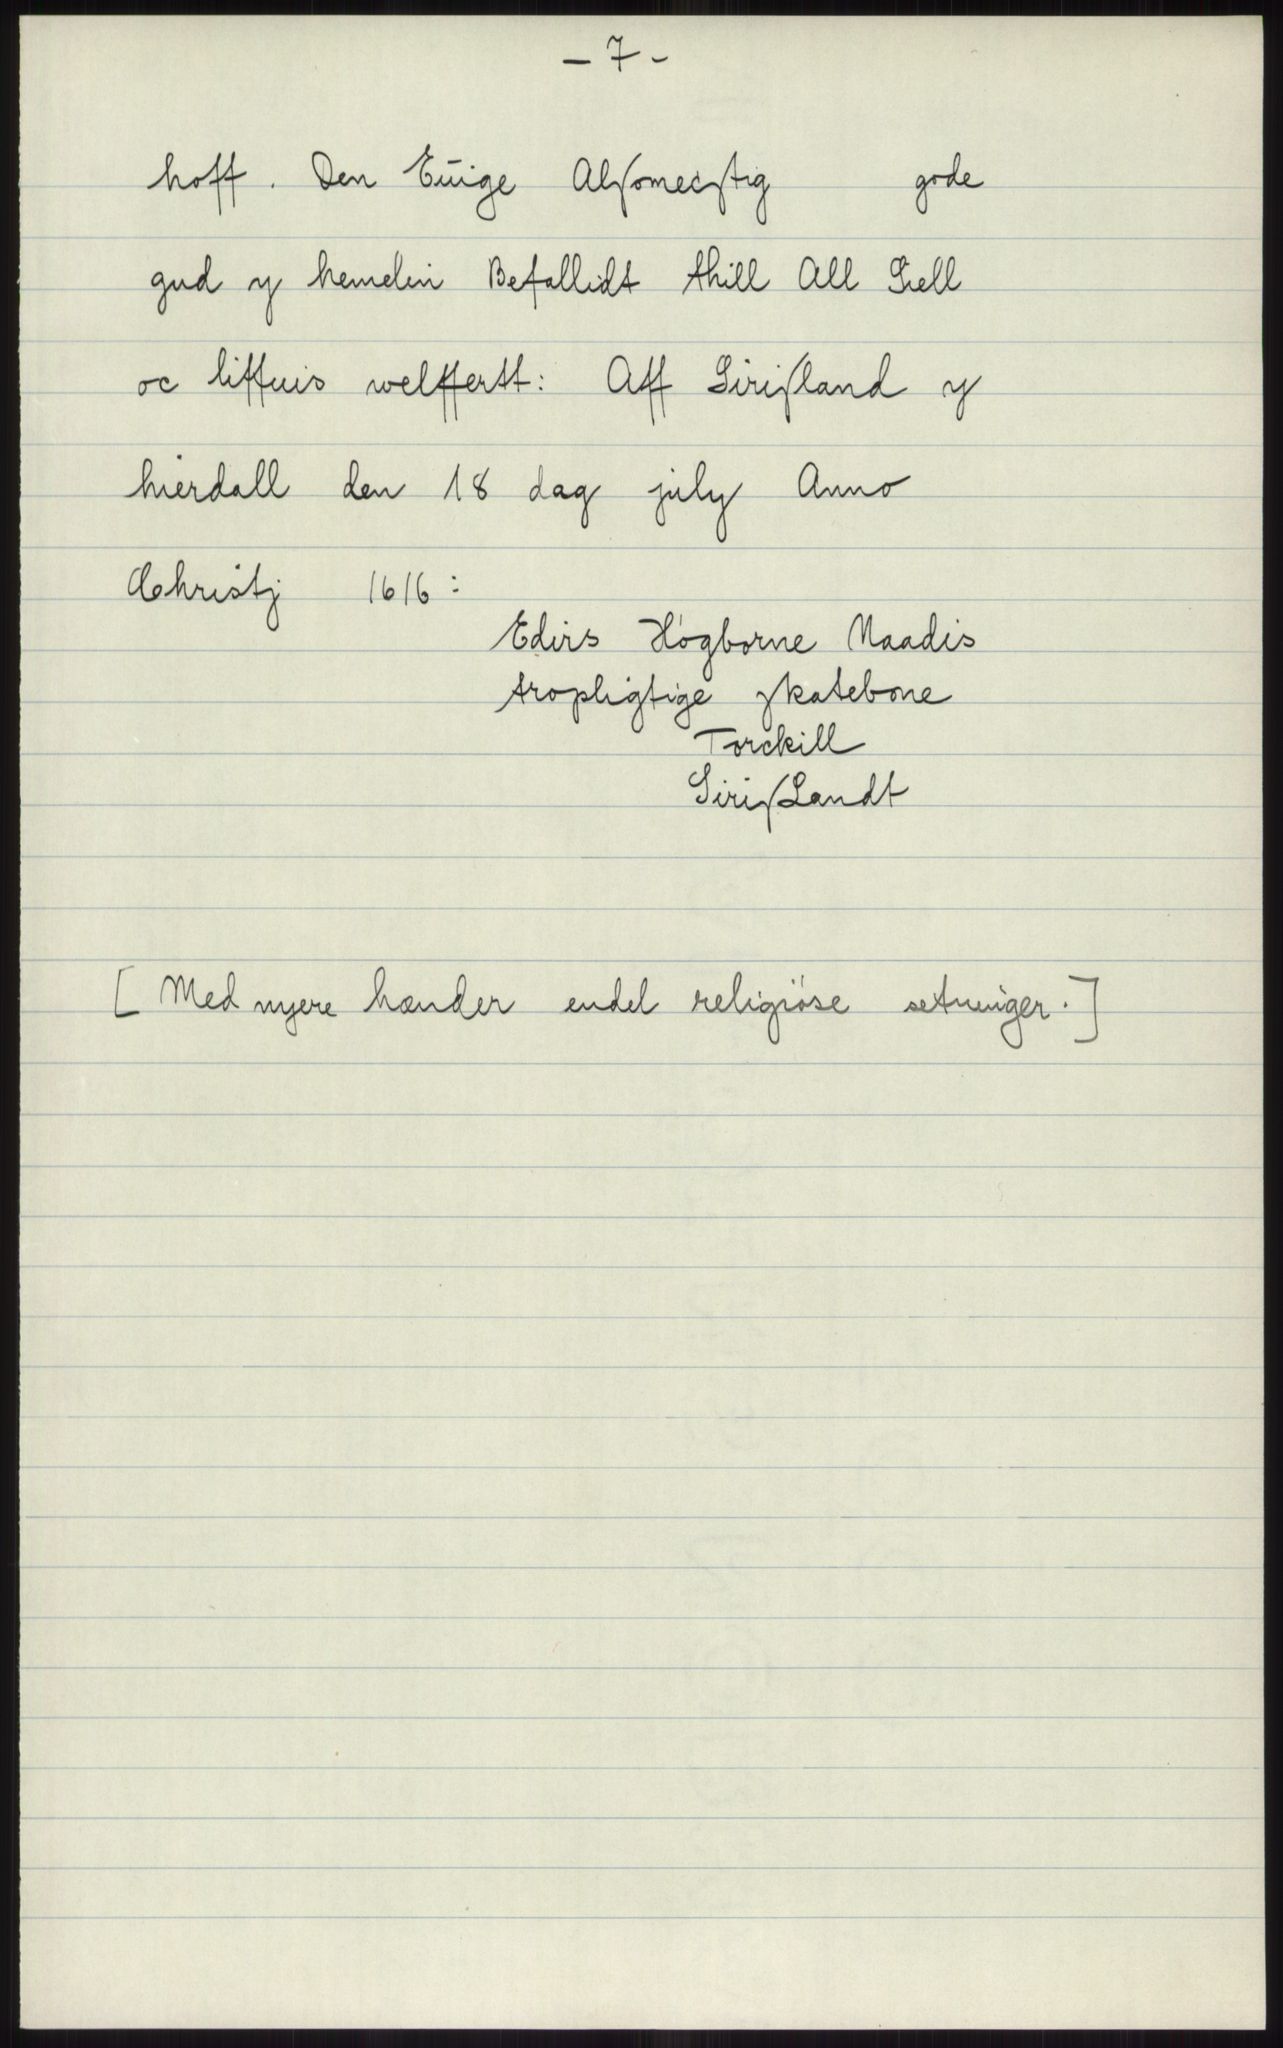 - 7 -
hoff. Den Euige Alsomecstig gode
gud y hemelin Befallidt thill All Siell
oc liffuis welffertt: Aff Sirisland y
hierdall den 18 dag july Anno
Christj 1616:
Edirs Høgborne Naadis
tropligtige skatebone
Torckill
SirisLandt
[Med nyere hænder endel religiøse setninger.]